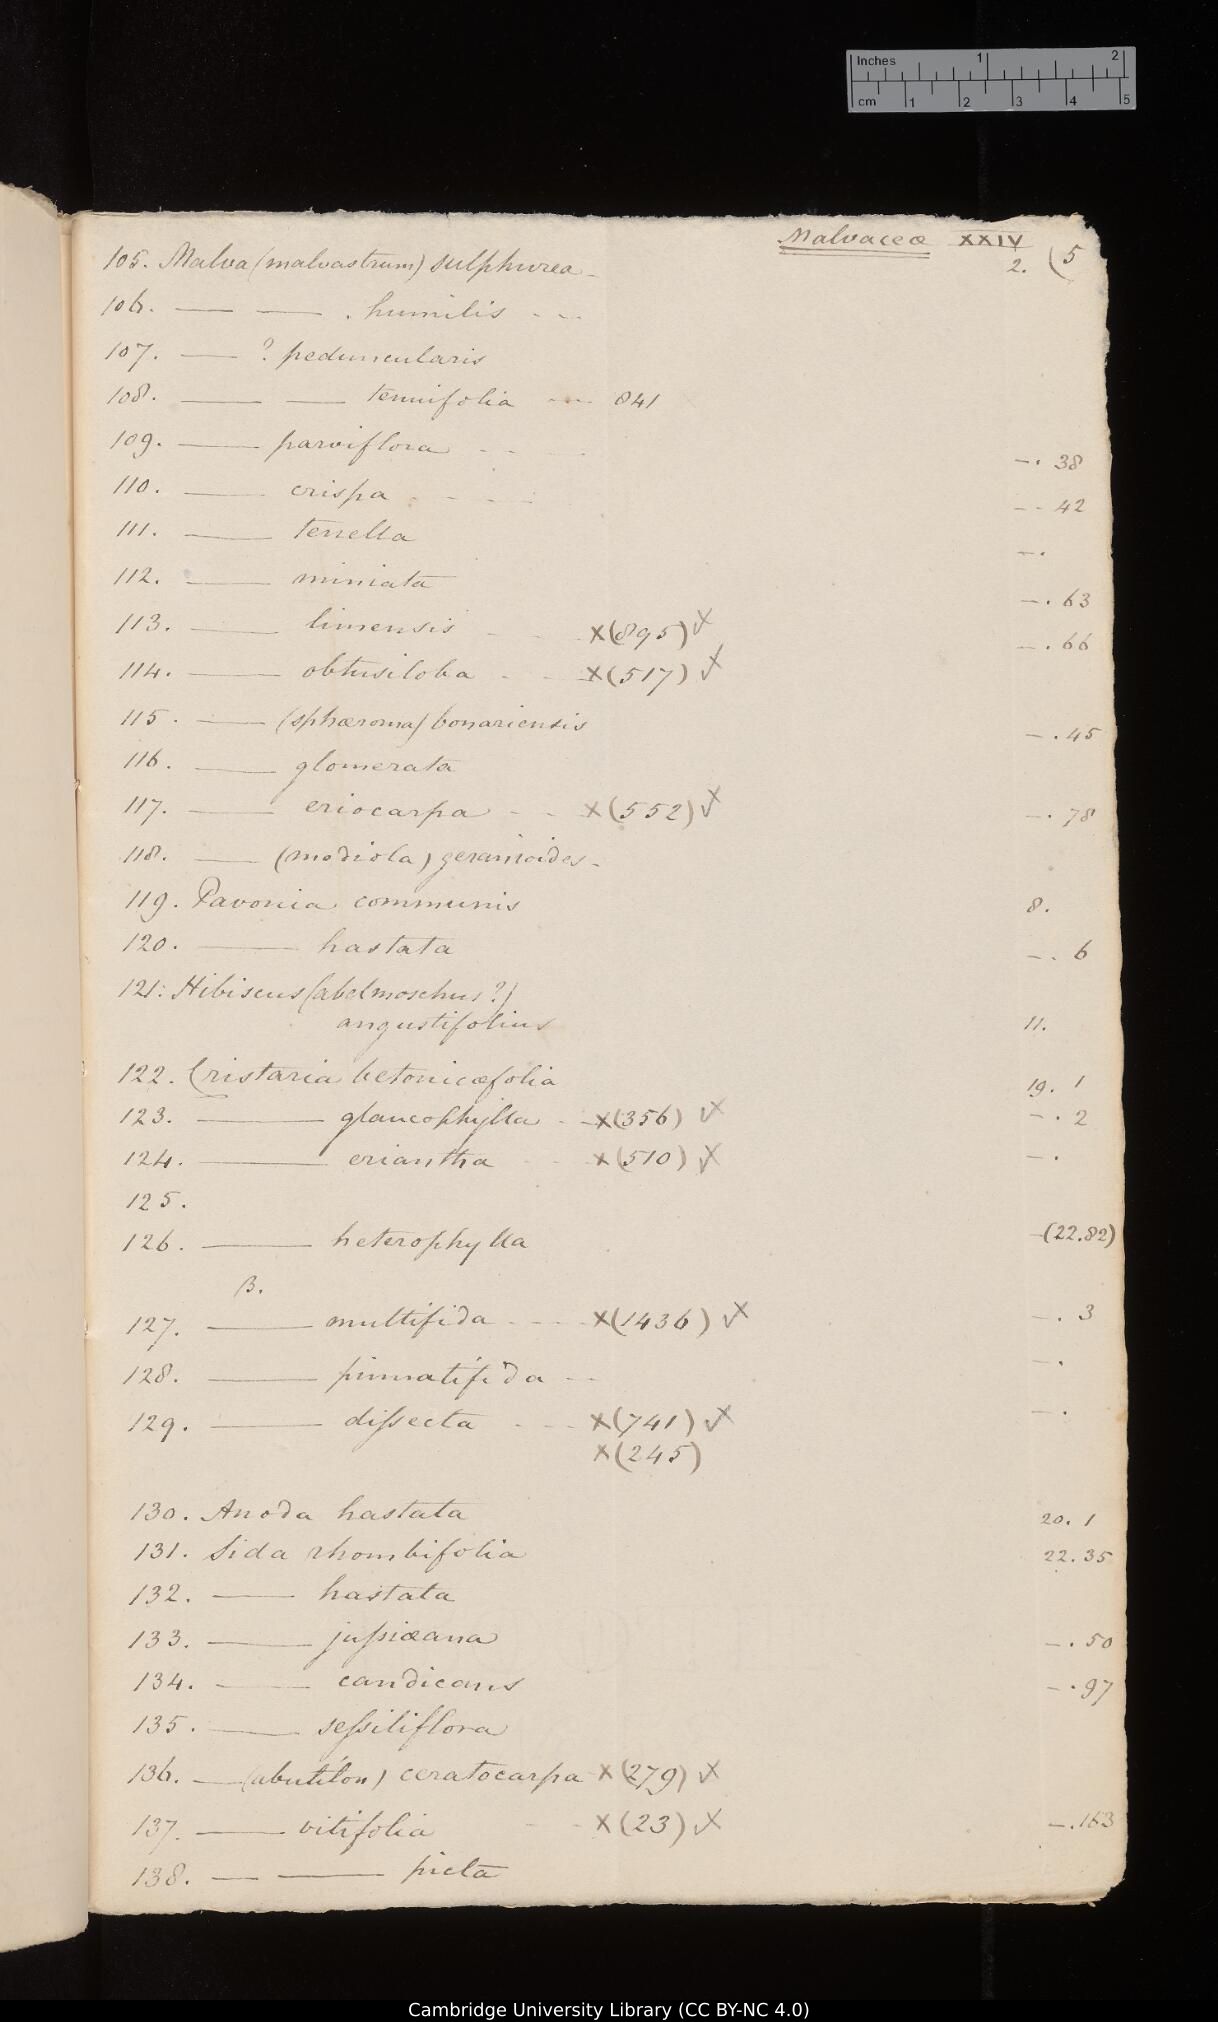 Inches 1 2
cm 1 2 3 4 5
Malvaceæ XXIV (5
105. Malva (malvastrum) sulphurea - 2.
106. — — . humilis - - -
107. — ? peduncularis
108. — — tenuifolia - - - 841
109. — parviflora - - - —. 38
110. — crispa - - - - - 42
111. — tenella —.
112. — miniata —. 63
113. — limensis - - x(895) ✓x —. 66
114. — obtusiloba - - x(517) ✓x
115. — (sphæroma) bonariensis —. 45
116. — glomerata
117. — eriocarpa - - x(552) ✓x —. 78
118. — (modiola) geranioides -
119. Pavonia communis 8.
120. — hastata —. 6
121. Hibiscus (abelmoschus?)
angustifolius 11.
122. Cristaria betonicæfolia 19. 1
123. — glaucophylla - x(356) ✓x —. 2
124. — eriantha - - x(510) ✓x —.
125.
126. — heterophylla —(22.82)
β.
127. — multifida - - - x(1436) ✓x —. 3
128. — pinnatifida - - —.
129. — dissecta - - - x(741) ✓x —.
x(245)
130. Anoda hastata 20. 1
131. Sida rhombifolia 22. 35
132. — hastata
133. — jussiæana —. 50
134. — candicans —. 97
135. — sessiliflora
136. — (abutilon) ceratocarpa x(279) ✓x
137. — vitifolia - - x(23) ✓x —. 163
138. — — picta
Cambridge University Library (CC BY-NC 4.0)